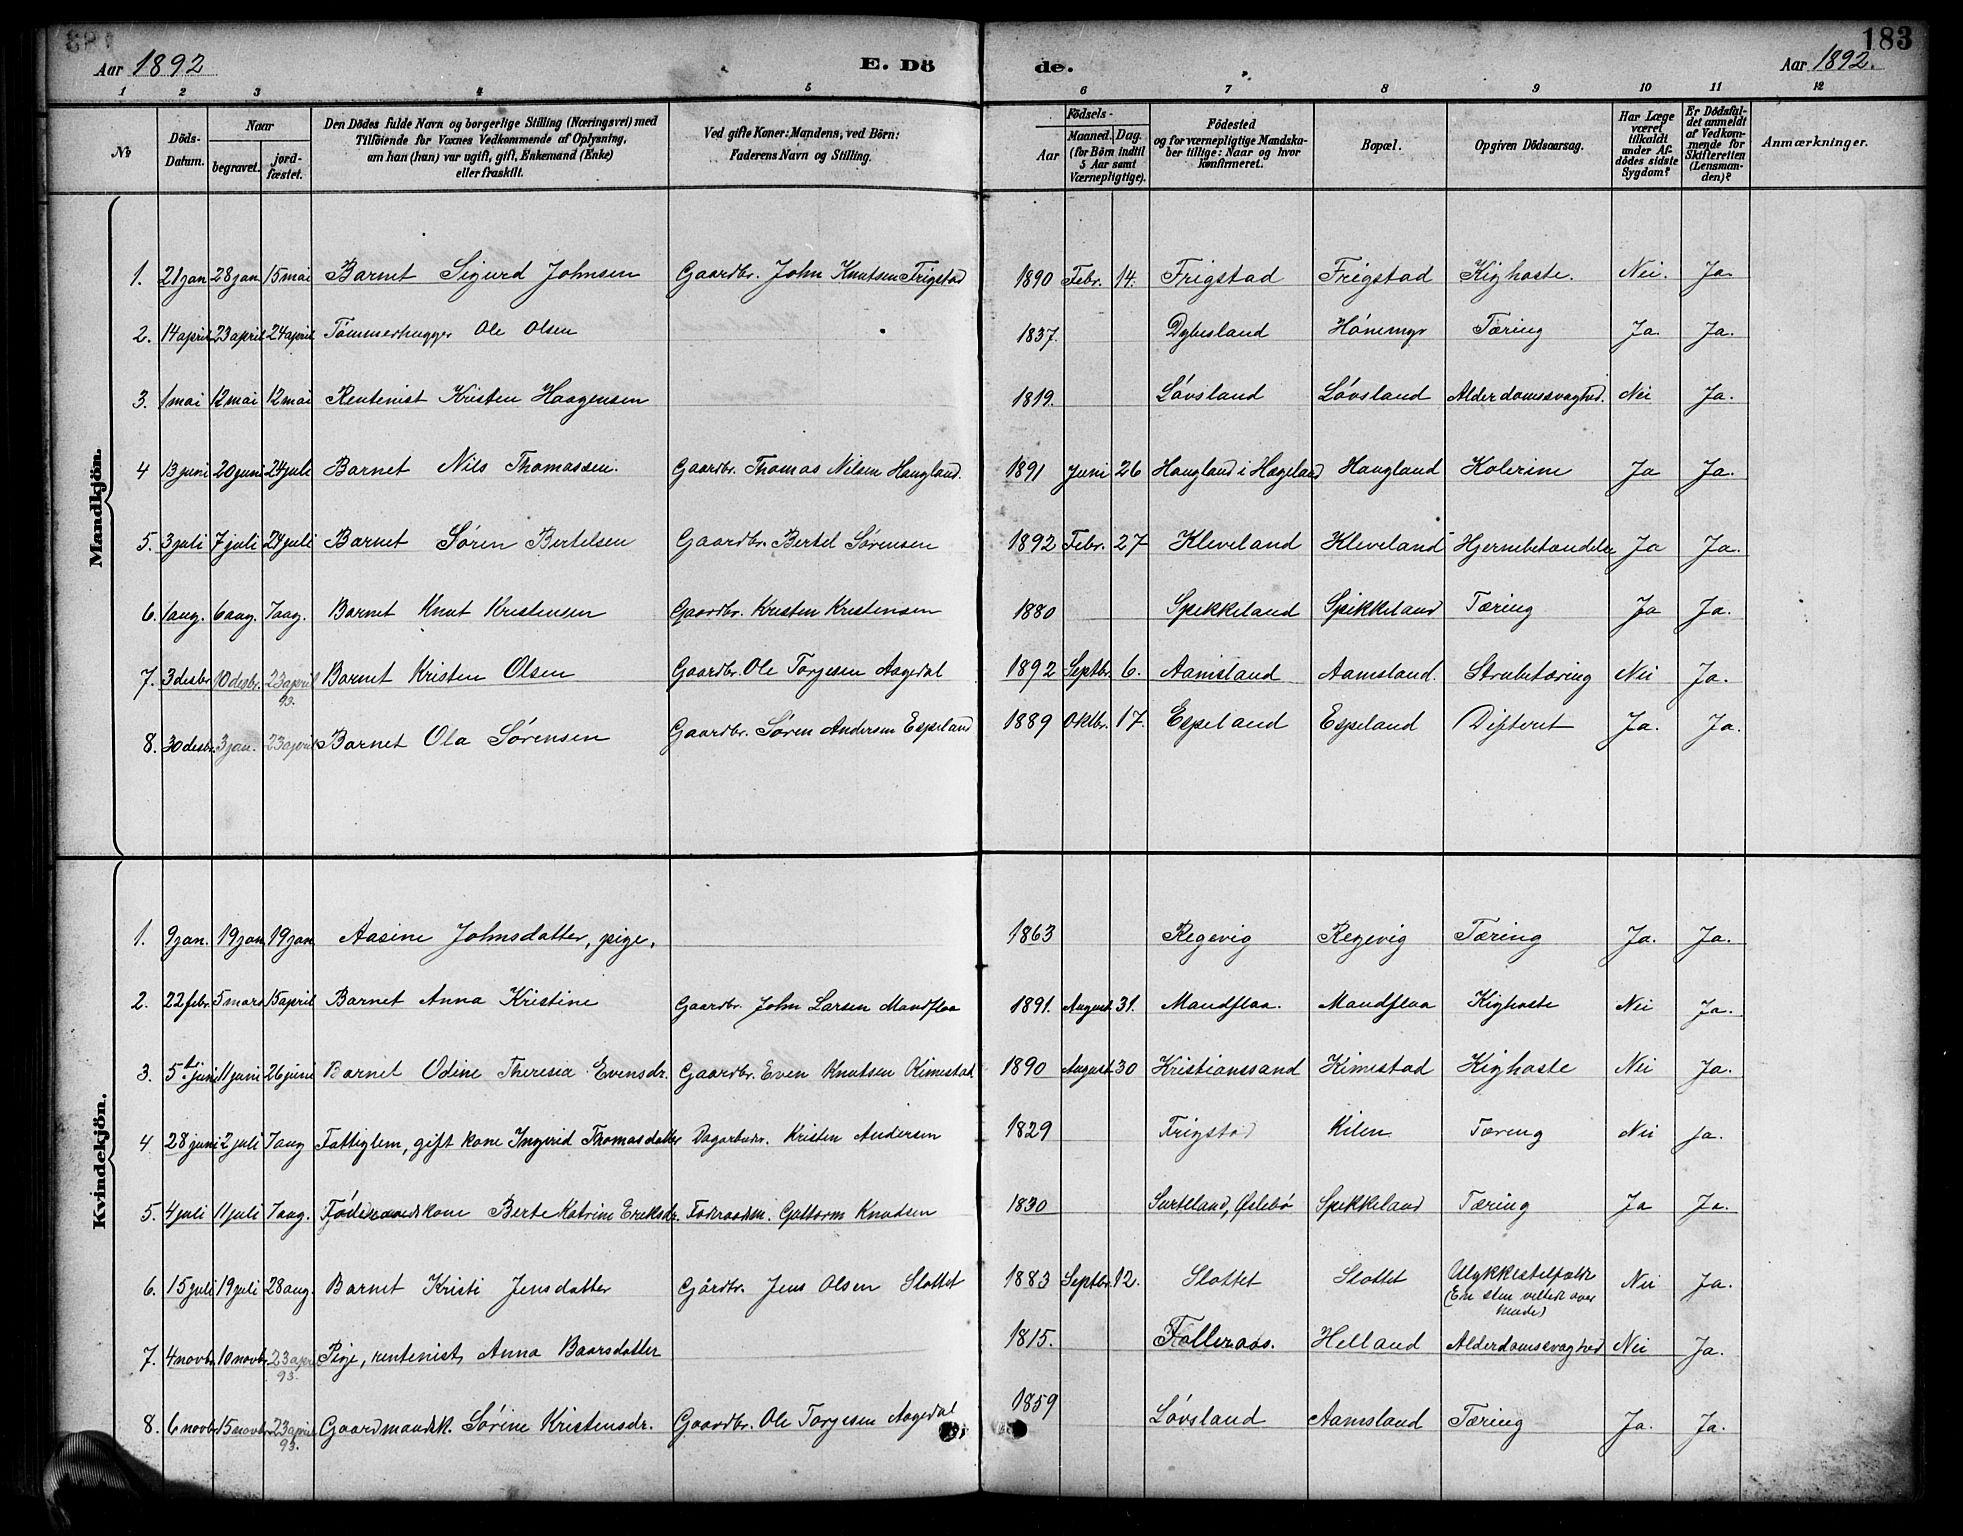 183
Aar 1892 E. Dö de. Aar 1892.
1 2 3 4 5 6 7 8 9 10 11 12
No
Döds-Datum.
Naar
begravet.
jord-fæstet.
Den Dödes fulde Navn og borgerlige Stilling (Næringsvei) med
Tilföiende for Voxnes Vedkommende af Oplysning,
om han (hun) var ugift, gift, Enkemand (Enke)
eller fraskilt.
Ved gifte Koner: Mandens, ved Börn:
Faderens Navn og Stilling.
Födsels-
Aar
Maaned. Dag.
(for Börn indtil
5 Aar samt
Værnepligtige).
Födested
og for værnepligtige Mandska-
ber tillige: Naar og hvor
konfirmeret.
Bopæl.
Opgiven Dödsaarsag.
Har Læge
været
tilkaldt
under Af-
dödes sidste
Sygdom?
Er Dödsfal-
det anmeldt
af Vedkom-
mende for
Skifteretten
(Lensman-
den)?
Anmærkninger.
Mandkjön.
1. 21 jan 28 jan. 15 mai Barnet Sigurd Johnsen Gaardbr. John Knutsen Frigstad 1890 Febr. 14. Frigstad Frigstad Kighoste. Nei. Ja.
2. 14 april 23 april 24 april Tømmerhugger Ole Olsen 1837. Dybesland Hønemyr Tæring Ja. Ja.
3. 1 mai 12 mai 12 mai Rentenist Kristen Haagensen 1819. Løvsland Løvsland Alderdomssvaghed. Nei Ja.
4 13 juni 20 juni 24 juli Barnet Nils Thomassen. Gaardbr. Thomas Nilsen Haugland. 1891 Juni 26 Haugland i Hægeland Haugland Kolerine Ja Ja.
5. 3 juli 7 juli 24 juli Barnet Søren Bertelsen Gaardbr. Bertel Sørensen 1892 Febr. 27 Kleveland Kleveland Hjernebetændelse Ja Ja.
6. 1 aug. 6 aug. 7 aug. Barnet Knut Kristensen Gaardbr. Kristen Kristensen 1880 Spikkeland Spikkeland Tæring Ja Ja.
7. 3 desbr. 10 desbr. 23 april 93. Barnet Kristen Olsen Gaardbr. Ole Torjesen Aagedal 1892 Septbr. 6. Aamsland Aamsland. Strubetæring Nei Ja.
8. 30 desbr. 3 jan. 23 april Barnet Ola Sørensen Gaardbr. Søren Andersen Espeland 1889 Oktbr. 17. Espeland Espeland Difterit Ja. Ja.
Kvindekjön.
1. 9 jan. 19 jan. 19 jan. Aasine Johnsdatter, pige. 1863 Regevig Regevig Tæring Ja. Ja.
2. 22 febr. 5 mars 15 april Barnet Anna Kristine Gaardbr. John Larsen Mandflaa 1891. August 31. Mandflaa. Mandflaa Kighoste Nei Ja.
3. 5te juni 11 juni 26 juni Barnet Odine Theresia Evensdr. Gaardbr. Even Knutsen Kimestad 1890 August 30 Kristianssand Kimestad Kighoste Nei Ja.
4 28 juni 2 juli 7 aug Fattiglem, gift kone Ingerid Thomasdatter Dagarbeider. Kristen Andersen 1829 Frigstad Kilen Tæring Nei Ja.
5. 4 juli 11 juli 7 aug. Føderaadskone Berte Katrine Eriksdr. Føderaadsm. Guttorm Knudsen 1830 Surteland, Øslebø Spikkeland Tæring Ja Ja.
6. 15 juli 19 juli 28 aug. Barnet Kristi Jensdatter Gårdbr. Jens Olsen Slottet 1883 Septbr. 12. Slottet Slottet Ulykkestilfælde
(En sten veltede over
hende) Nei Ja.
7. 4 novbr. 10 novbr. 23 apr 93. Pige, rentenist, Anna Baarsdatter 1815. Falleraas. Helland Alderdomssvaghed Nei Ja.
8. 6 novbr. 15 novbr. 23 april 93. Gaardmandsk. Sørine Kristensdr. Gaardbr. Ole Torjesen Aagedal 1859 Løvsland Aamsland Tæring Ja. Ja.